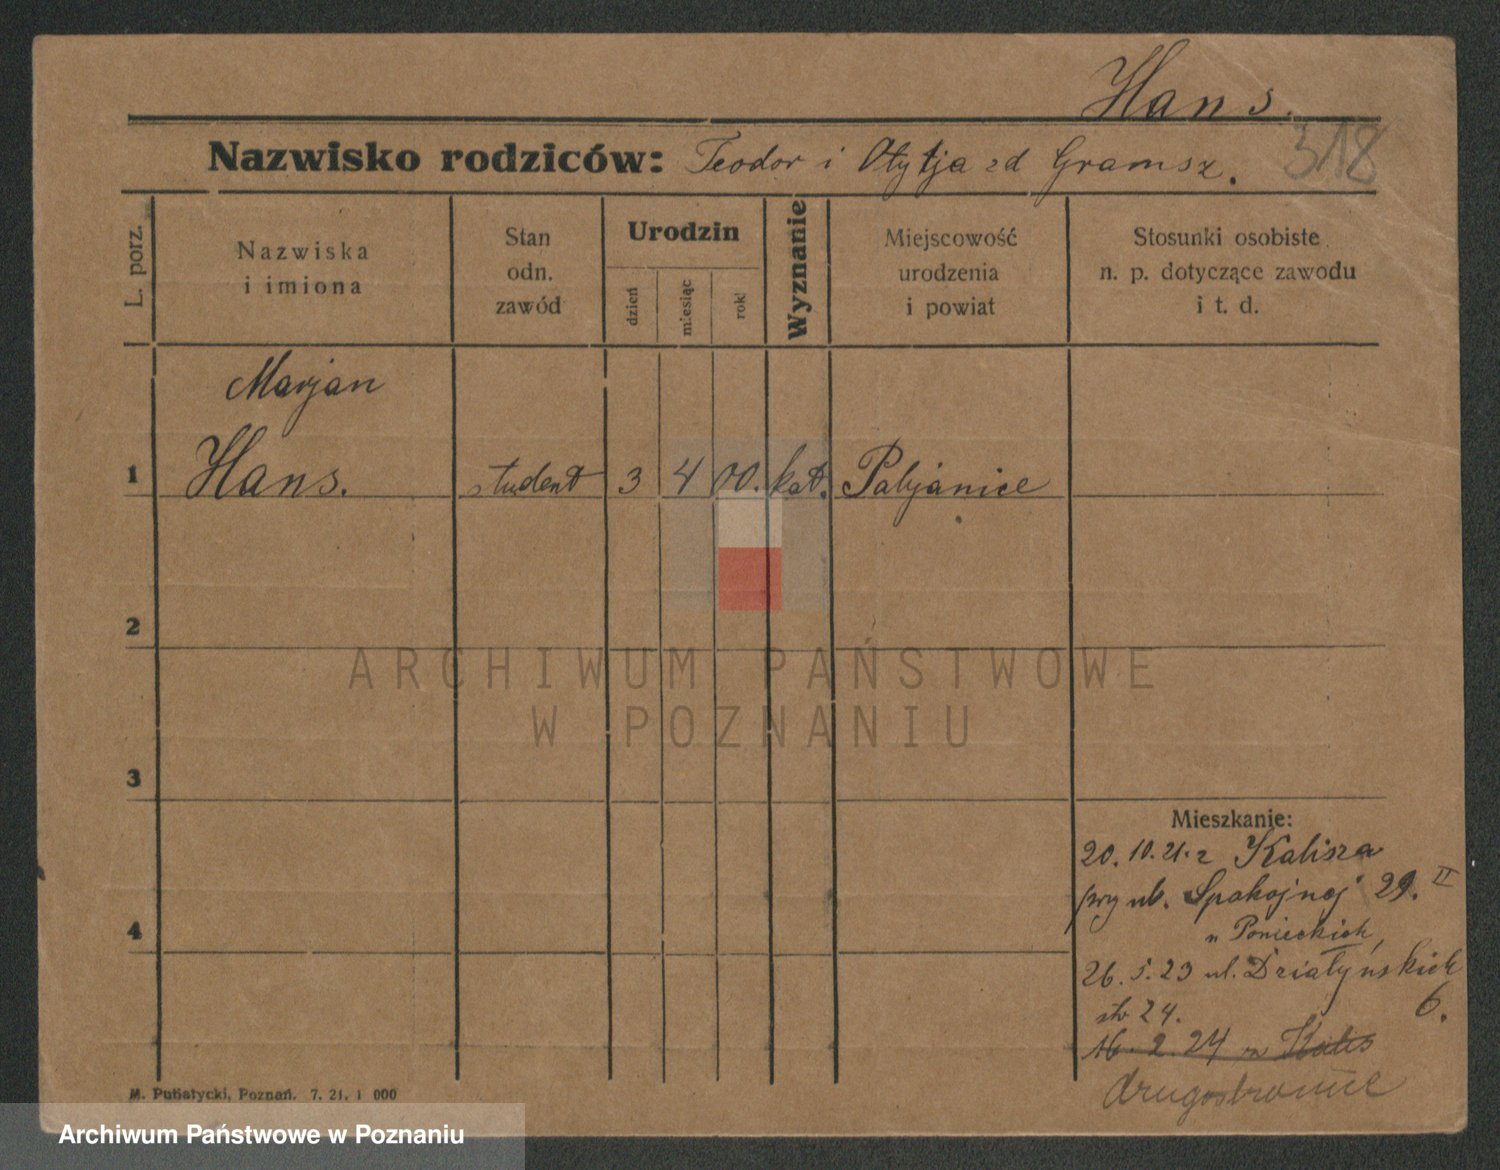 Hans.
Nazwisko rodziców: Teodor i Otylja zd Gramsz.
318
L. porz.
Nazwiska
i imiona
Stan
odn.
zawód
Urodzin
dzień
miesiąc
rok
Wyznanie
Miejscowość
urodzenia
i powiat
Stosunki osobiste
n. p. dotyczące zawodu
i t. d.
Marjan
1 Hans. student 3 4 00. kat. Pabjanice
2
3
4
Mieszkanie:
20. 10. 21. z Kalisza
przy ul. Spokojnej 29. II
u Ponieckich,
26. 5. 23 ul. Działyńskich
6.
24.
16. 2. 24
drugostronnie
M. Putiatycki, Poznań. 7. 21. 1 000
ARCHIWUM PAŃSTWOWE
W POZNANIU
Archiwum Państwowe w Poznaniu